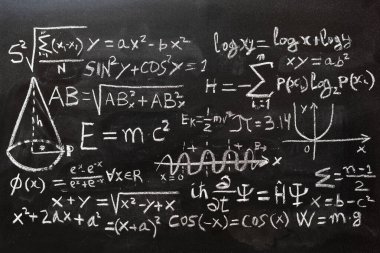 S=√(Σ(xᵢ-x̄)²/N) y=ax²-bx+c log xy=log x+log y
xy=ab²
SIN²y+COS²y=1 H=-Σ P(xᵢ)log₂P(xᵢ)
i=1 n
AB=√(AB²ₓ+AB²ₓ)
h
R
E=m·c² Eₖ=½mv² π=3.14 y x
x=0 x
φ(x)=(eˣ-e⁻ˣ)/(eˣ+e⁻ˣ) ∀x∈R y=√(x²-y+x) iħ ∂/∂t Ψ=ĤΨ
x=b-c²
x²+2ax+a²=(x+a)² COS(-x)=COS(x) W=m·g